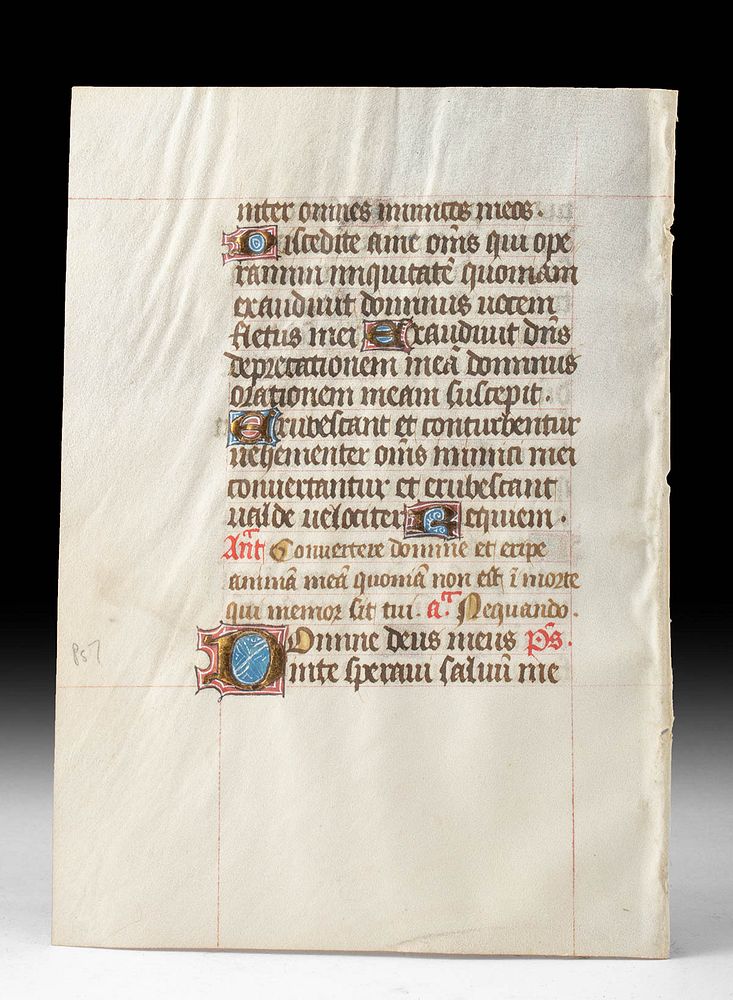 inter omnes inimicos meos.
Discedite a me om̄s qui ope
ramini iniquitatē quoniam
exaudiuit dominus uocem
fletus mei Exaudiuit dn̄s
deprecationem meā dominus
orationem meam suscepit.
Erubescant et conturbentur
uehementer om̄s inimici mei
conuertantur et erubescant
ualde uelociter Requiem.
Ant̄ Conuertere domine et eripe
animā meā quoniā non est ī morte
qui memor sit tui. a᷒ Nequando.
Domine deus meus ps̄.
in te speraui saluū me
Ps 7